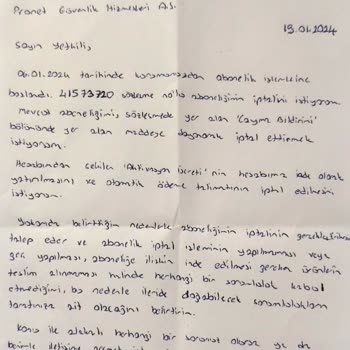 Pronet Güvenlik Hizmetleri A.Ş.
19.01.2024
Sayın Yetkili,
06.01.2024 tarihinde abonelik işlemlerine
başlandı. 41573720 sözleşme no'lu aboneliğimin iptalini istiyorum.
Mevcut aboneliğimi, sözleşmede yer alan 'Cayma Bildirimi'
bölümünde yer alan maddeye dayanarak iptal ettirmek
istiyorum.
Hesabımdan çekilen 'Aktivasyon ücreti' nin hesabıma iade olarak
yatırılmasını ve otomatik ödeme talimatının iptal edilmesini
istiyorum.
Yukarıda belirttiğim nedenlerle aboneliğimin iptalinin
talep eder ve abonelik iptal işleminin yapılmaması veya
geç yapılması, aboneliğe ilişkin iade edilmesi gereken ürünlerin
teslim alınmaması halinde herhangi bir sorumluluk kabul
etmediğimi, bu nedenle ileride doğabilecek sorumlulukların
tarafınıza ait olacağını belirtirim.
Konu ile alakalı herhangi bir olursa ya da
benimle iletişime